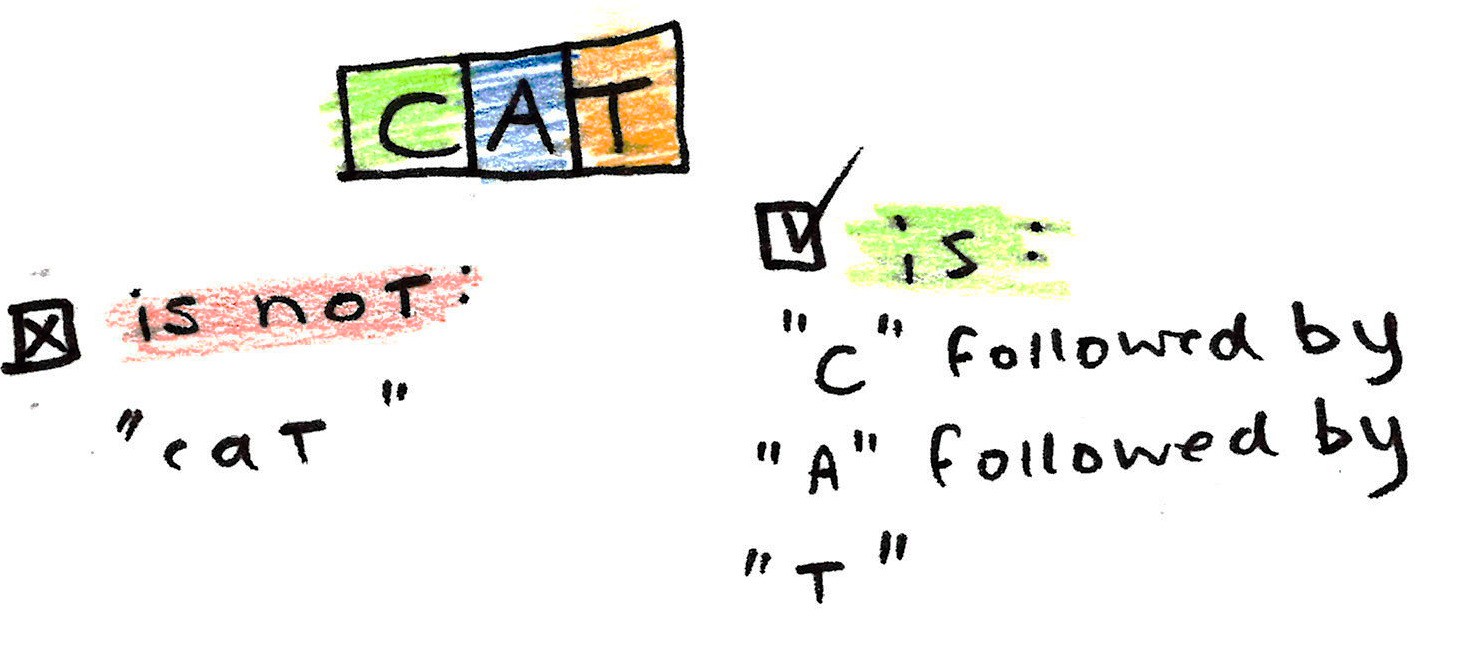 CAT
is not:
"cat"
is:
"C" followed by
"A" followed by
"T"